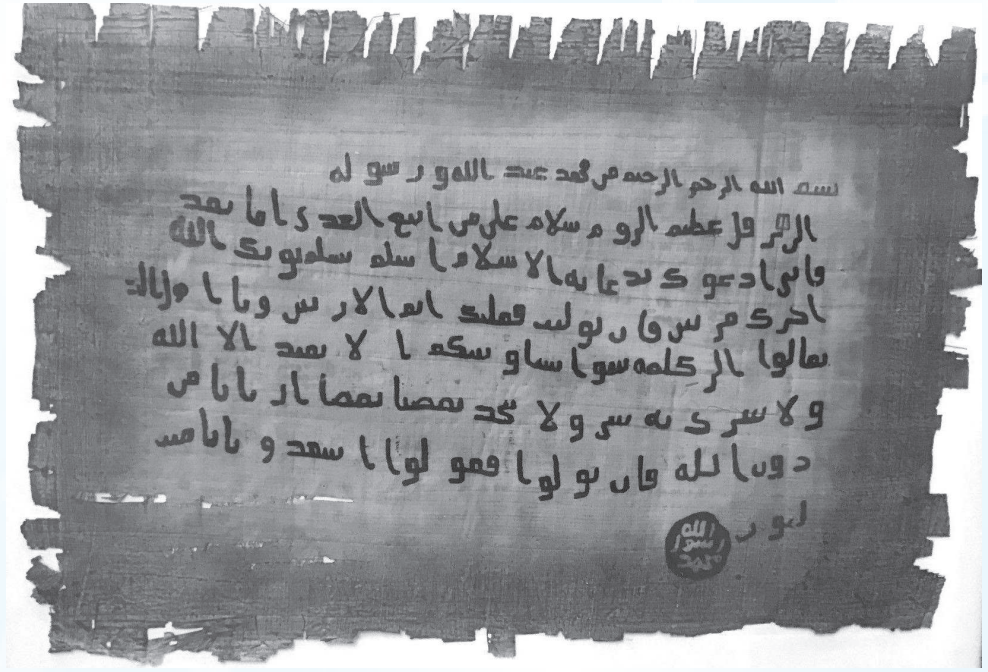 بسم الله الرحمن الرحيم من محمد عبد الله و رسوله
الى هرقل عظيم الروم سلام على من اتبع الهدى اما بعد
فانى ادعوك بدعاية الاسلام اسلم تسلم يوتك الله
اجرك مرتين فان توليت فعليك اثم الاريسين ويا اهل الكتب
تعالوا الى كلمة سوا بيننا وبينكم ا لا نعبد الا الله
ولا نشرك به شيئا ولا يتخذ بعضنا بعضا اربابا من
دون الله فان تولوا فقولوا اشهدوا بانا مسـ
لمون
الله
رسول
محمد